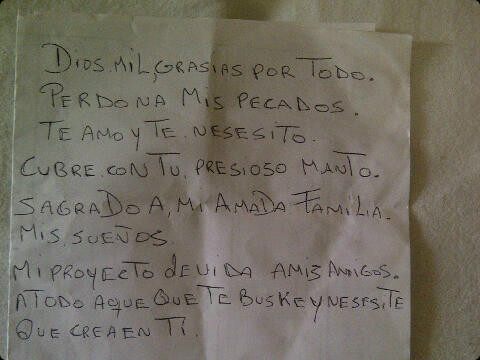 DIOS. MIL, GRASIAS POR TODO.
PERDONA MIS PECADOS.
TE AMO Y TE. NESESITO.
CUBRE. CON TU. PRESIOSO MANTO.
SAGRADO A, MI AMADA FAMILIA.
MIS. SUEÑOS.
MI PROYECTO de VIDA A MIS AMIGOS.
A TODO AQUE QUE TE BUSKE Y NESESITE
QUE CREA EN TÍ.